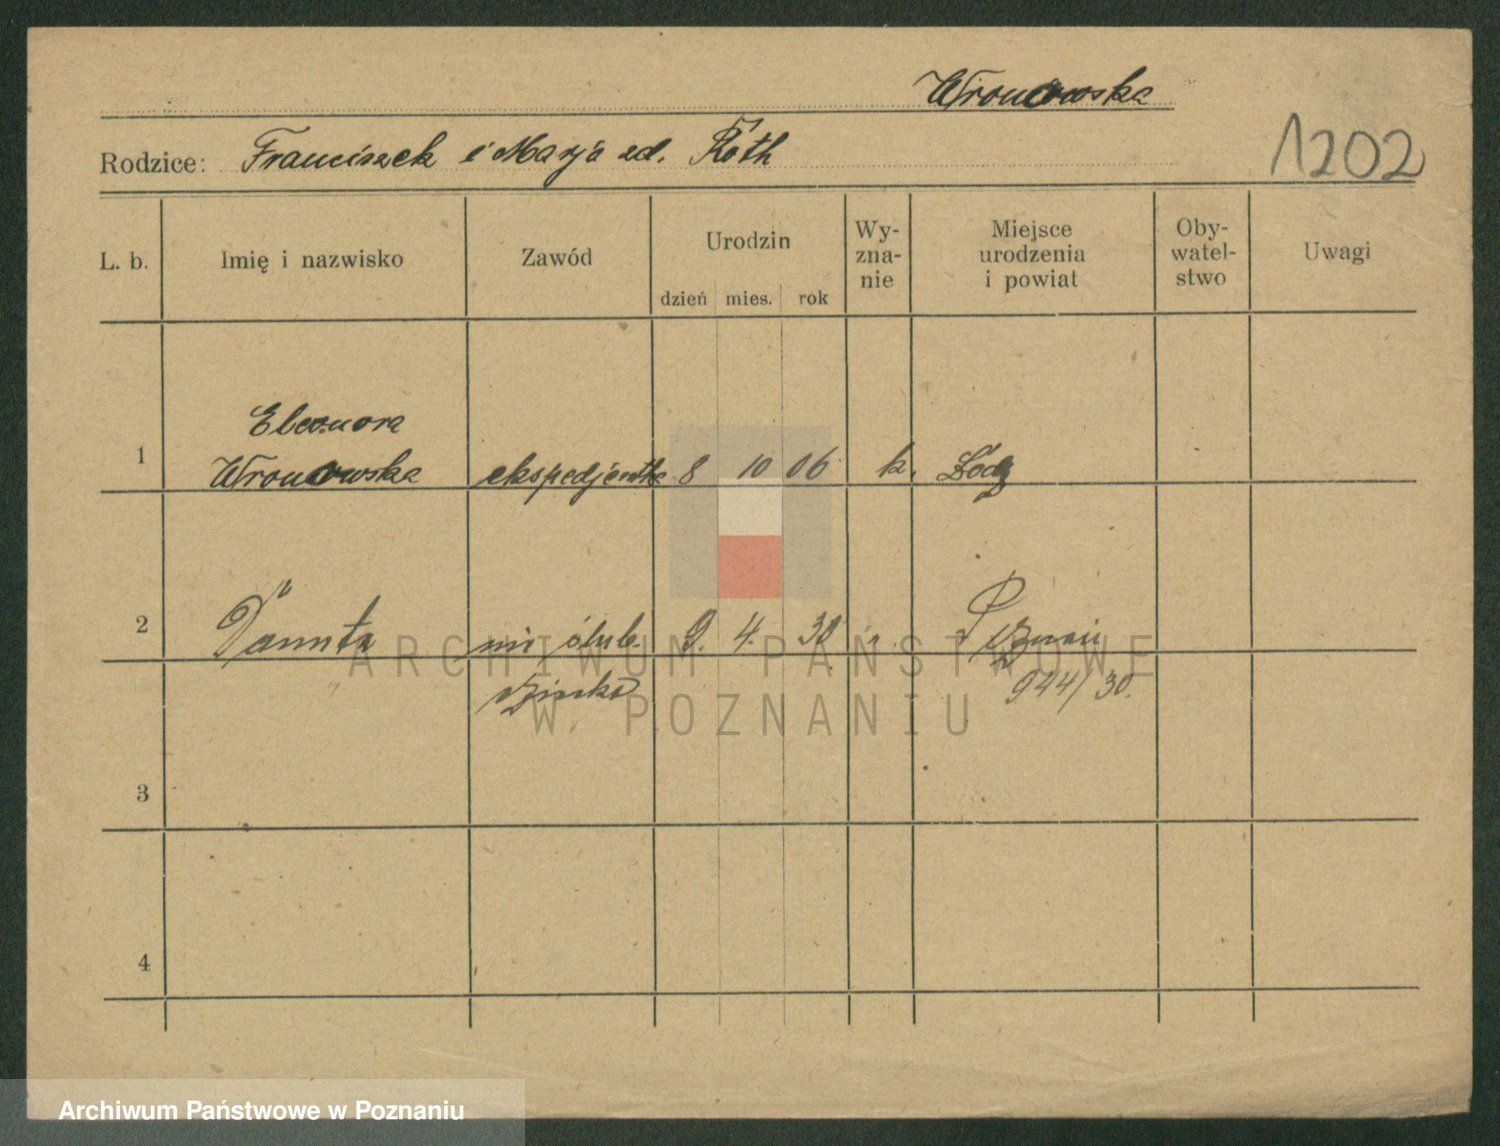 Wronowska
Rodzice: Franciszek i Marja zd. Róth
1202
L. b. Imię i nazwisko Zawód Urodzin dzień mies. rok Wy-zna-nie Miejsce urodzenia i powiat Oby-watel-stwo Uwagi
Eleonora
1 Wronowska ekspedjentka 8 10 06 k. Łódź
2 Danuta nie ślub. 9. 4. 30 Poznań
dziecko 944/30.
3
4
ARCHIWUM PAŃSTWOWE
W POZNANIU
Archiwum Państwowe w Poznaniu